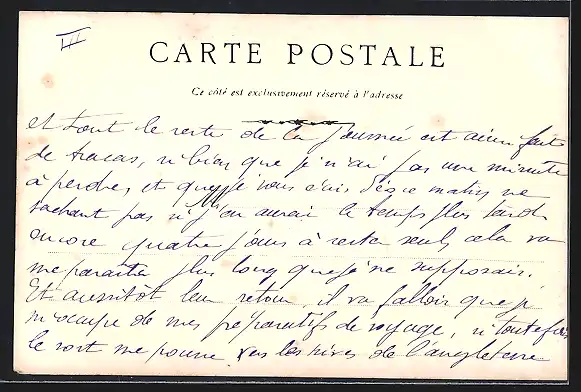 III
CARTE POSTALE
Ce côté est exclusivement réservé à l'adresse
et tout le reste de la journée est ainsi fait
de tracas, si bien que je n'ai pas une minute
à perdre, et que je vous écris dès ce matin ne
sachant pas si j'en aurai le temps plus tard
encore quatre jours à rester seuls, cela va
me paraître plus long que je ne supposais.
Et aussitôt leur retour, il va falloir que je
m'occupe de mes préparatifs de voyage, si toutefois
le sort me pousse vers les rives de l'angleterre